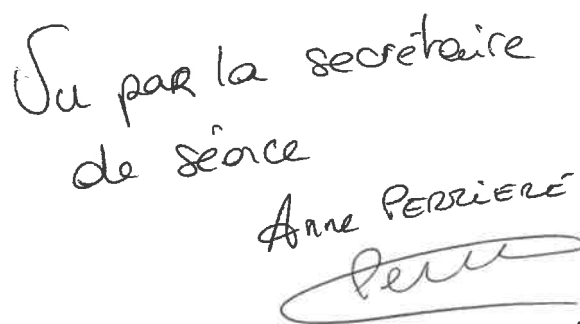 Vu par la secrétaire
de séance
Anne PERRIERE